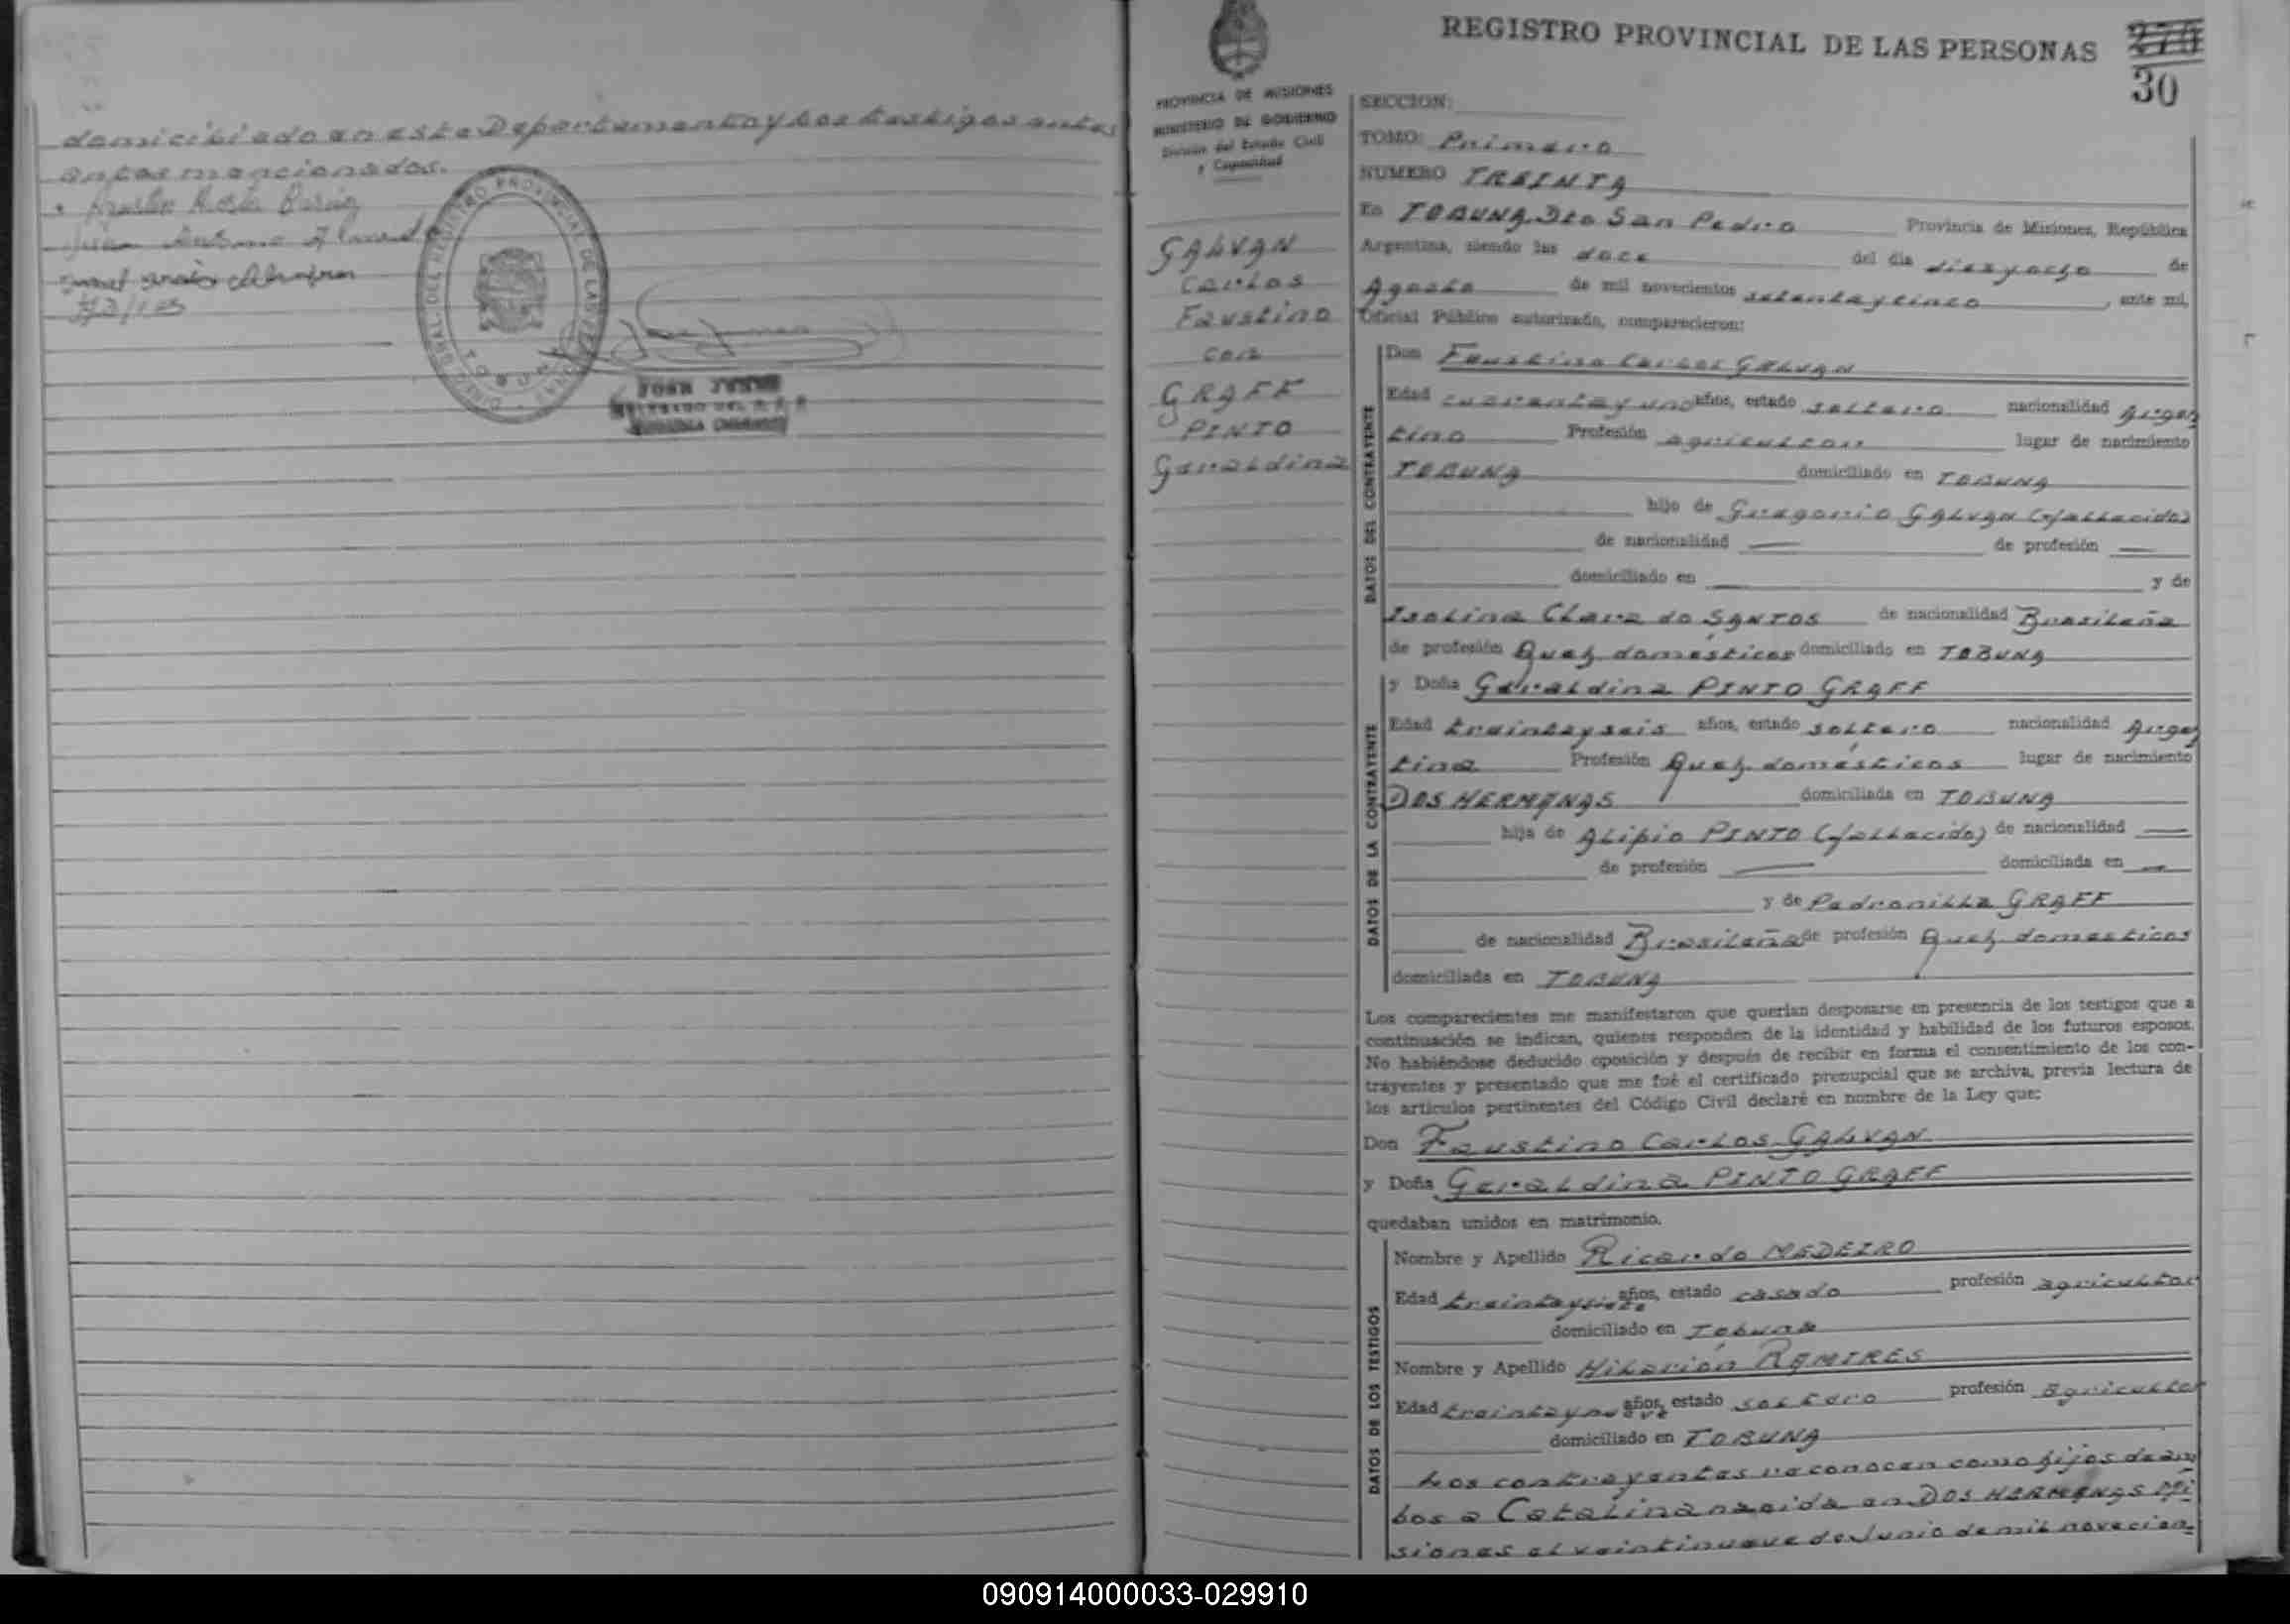 domiciliado en este Departamento y los testigos antes
antes mencionados.
Juan Antonio
DIREC. GRAL. DEL REGISTRO PROVINCIAL DE LAS PERSONAS
TOBUNA
JOSE
REGISTRO PROVINCIAL DE LAS PERSONAS
30
PROVINCIA DE MISIONES
MINISTERIO DE GOBIERNO
División del Estado Civil
y Capacidad
GALVAN
Carlos
Faustino
con
GRAFF
PINTO
Geraldina
SECCION:
TOMO: Primero
NUMERO TREINTA
En TOBUNA, Dto San Pedro Provincia de Misiones, República
Argentina, siendo las doce del día diez y ocho de
Agosto de mil novecientos setenta y cinco, ante mí,
Oficial Público autorizado, comparecieron:
DATOS DEL CONTRAYENTE
Don Faustino Carlos GALVAN
Edad cuarenta y uno años, estado soltero nacionalidad Argen
tino Profesión agricultor lugar de nacimiento
TOBUNA domiciliado en TOBUNA
hijo de Gregorio GALVAN (fallecido)
de nacionalidad — de profesión —
domiciliado en y de
Isolina Clara do SANTOS de nacionalidad Brasileña
de profesión Queh. domésticos domiciliado en TOBUNA
DATOS DE LA CONTRAYENTE
y Doña Geraldina PINTO GRAFF
Edad treinta y seis años, estado soltero nacionalidad Argen
tina Profesión Queh. domésticos lugar de nacimiento
DOS HERMANAS domiciliada en TOBUNA
hija de Alipio PINTO (fallecido) de nacionalidad —
de profesión — domiciliada en —
y de Pedronilla GRAFF
de nacionalidad Brasileña de profesión Queh. domesticos
domiciliada en TOBUNA
Los comparecientes me manifestaron que querían desposarse en presencia de los testigos que a
continuación se indican, quienes responden de la identidad y habilidad de los futuros esposos.
No habiéndose deducido oposición y después de recibir en forma el consentimiento de los con-
trayentes y presentado que me fué el certificado prenupcial que se archiva, previa lectura de
los artículos pertinentes del Código Civil declaré en nombre de la Ley que:
Don Faustino Carlos GALVAN
y Doña Geraldina PINTO GRAFF
quedaban unidos en matrimonio.
DATOS DE LOS TESTIGOS
Nombre y Apellido Ricardo MEDEIRO
Edad treinta y siete años, estado casado profesión agricultor
domiciliado en Tobuna
Nombre y Apellido Hilarión RAMIRES
Edad treinta y nueve años, estado soltero profesión agricultor
domiciliado en TOBUNA
Los contrayentes reconocen como hijos de am
bos a Catalina nacida en DOS HERMANAS Mi
siones el veintinueve de Junio de mil novecien=
090914000033-029910